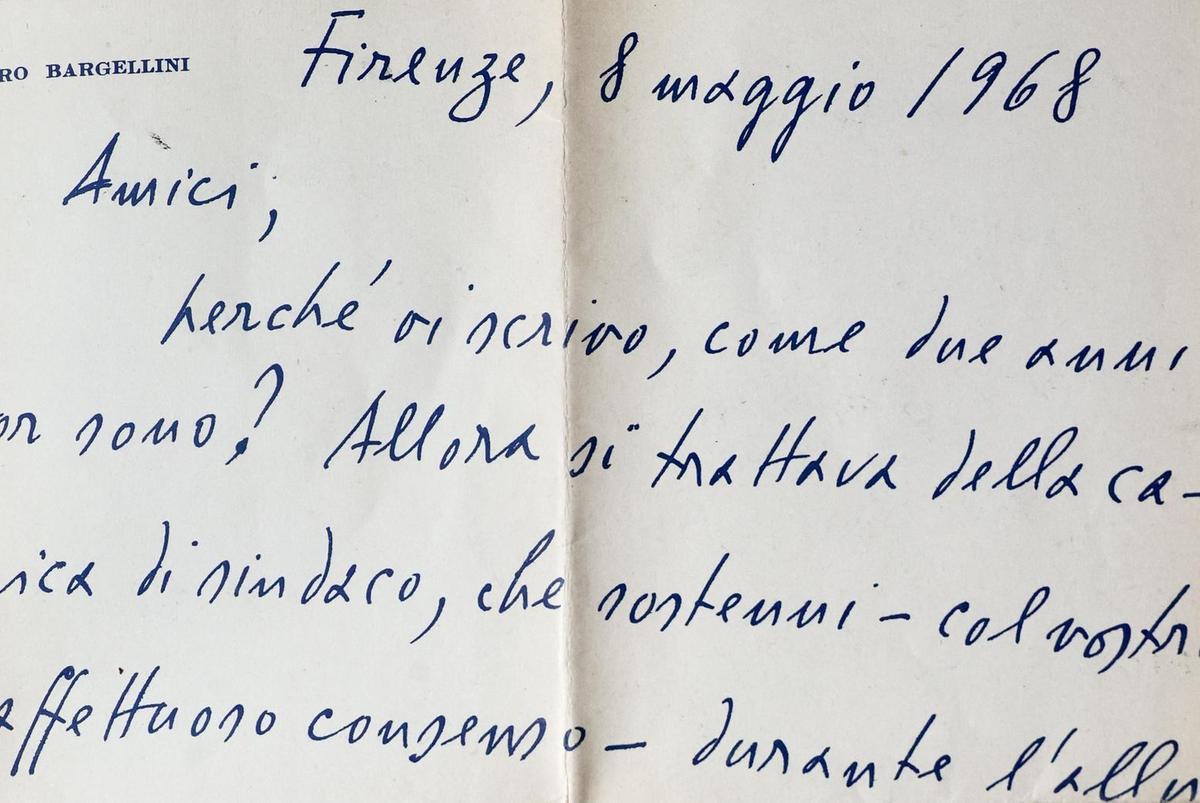 RO BARGELLINI
Firenze, 8 maggio 1968
Amici,
perché vi scrivo, come due anni
or sono? Allora si trattava della ca-
rica di sindaco, che sostenni - col vostr
affettuoso consenso - durante l'allu